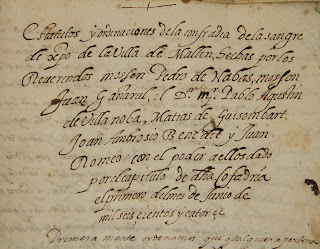 Estatutos y ordinaciones de la confradia de la sangre
de xp̃o de la Villa de Mallen, hechas por los
Reuerendos mossen Pedro de Nabas, mossen
Juan Gañarul, el Dr. mº. Pablo Agustin
de Villanoba, Matias de Guisombart.
Joan Ambrosio Benedet y Juan
Romeo con el poder a ellos dado
por el capitulo de dha Cofadria
el primero del mes de Junio de
mil seis cientos y catorce
Primera mente ordenamos que qualquiere